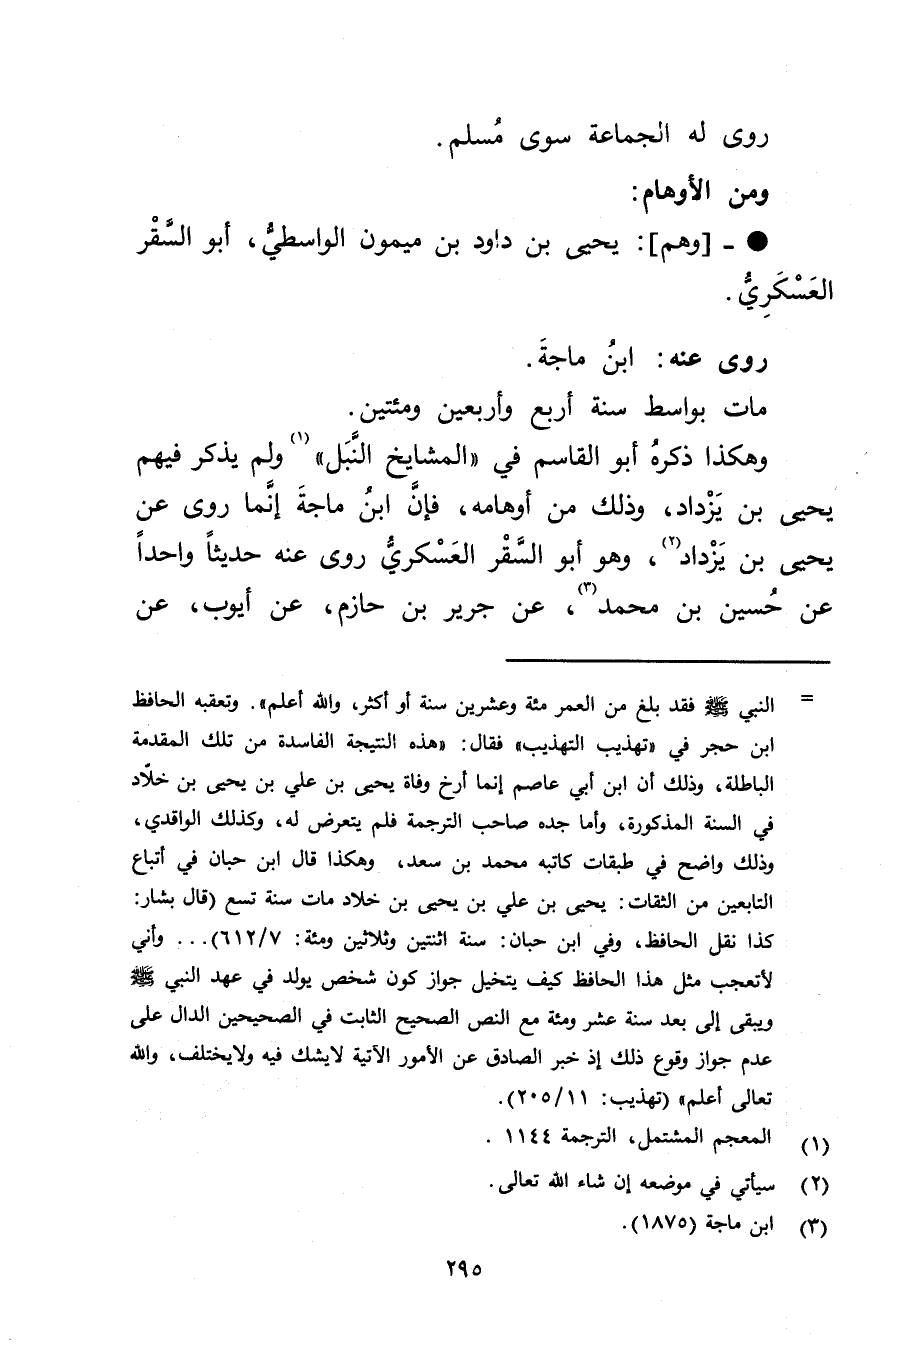 روى له الجماعة سوى مُسلم.
ومن الأوهام:
● ـ [وهم]: يحيى بن داود بن ميمون الواسطيُّ، أبو السَّقْر
العَسْكَرِيُّ.
روى عنه: ابنُ ماجةَ.
مات بواسط سنة أربع وأربعين ومئتين.
وهكذا ذكرهُ أبو القاسم في «المشايخ النَّبَل»(١) ولم يذكر فيهم
يحيى بن يَزْداد، وذلك من أوهامه، فإنَّ ابنُ ماجةَ إنَّما روى عن
يحيى بن يَزْداد(٢)، وهو أبو السَّقْر العَسْكريُّ روى عنه حديثاً واحداً
عن حُسين بن محمد(٣)، عن جرير بن حازم، عن أيوب، عن
= النبي ﷺ فقد بلغ من العمر مئة وعشرين سنة أو أكثر، والله أعلم». وتعقبه الحافظ
ابن حجر في «تهذيب التهذيب» فقال: «هذه النتيجة الفاسدة من تلك المقدمة
الباطلة، وذلك أن ابن أبي عاصم إنما أرخ وفاة يحيى بن علي بن يحيى بن خلّاد
في السنة المذكورة، وأما جده صاحب الترجمة فلم يتعرض له، وكذلك الواقدي،
وذلك واضح في طبقات كاتبه محمد بن سعد، وهكذا قال ابن حبان في أتباع
التابعين من الثقات: يحيى بن علي بن يحيى بن خلاد مات سنة تسع (قال بشار:
كذا نقل الحافظ، وفي ابن حبان: سنة اثنتين وثلاثين ومئة: ٦١٢/٧)... وأني
لأتعجب مثل هذا الحافظ كيف يتخيل جواز كون شخص يولد في عهد النبي ﷺ
ويبقى إلى بعد سنة عشر ومئة مع النص الصحيح الثابت في الصحيحين الدال على
عدم جواز وقوع ذلك إذ خبر الصادق عن الأمور الآتية لايشك فيه ولايختلف، والله
تعالى أعلم» (تهذيب: ٢٠٥/١١).
(١) المعجم المشتمل، الترجمة ١١٤٤ .
(٢) سيأتي في موضعه إن شاء الله تعالى.
(٣) ابن ماجة (١٨٧٥).
٢٩٥